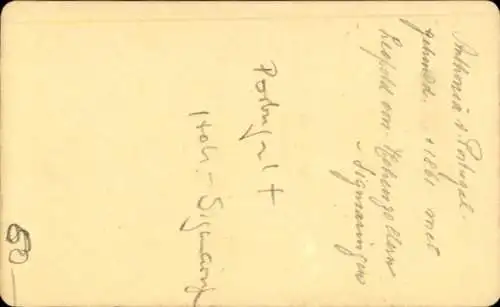 Anthonia v. Portugal.
gehuwd. + 1861 met
Leopold von Hohenzollern
- Sigmaringen
Portugal +
Hoh.-Sigmaring
50_